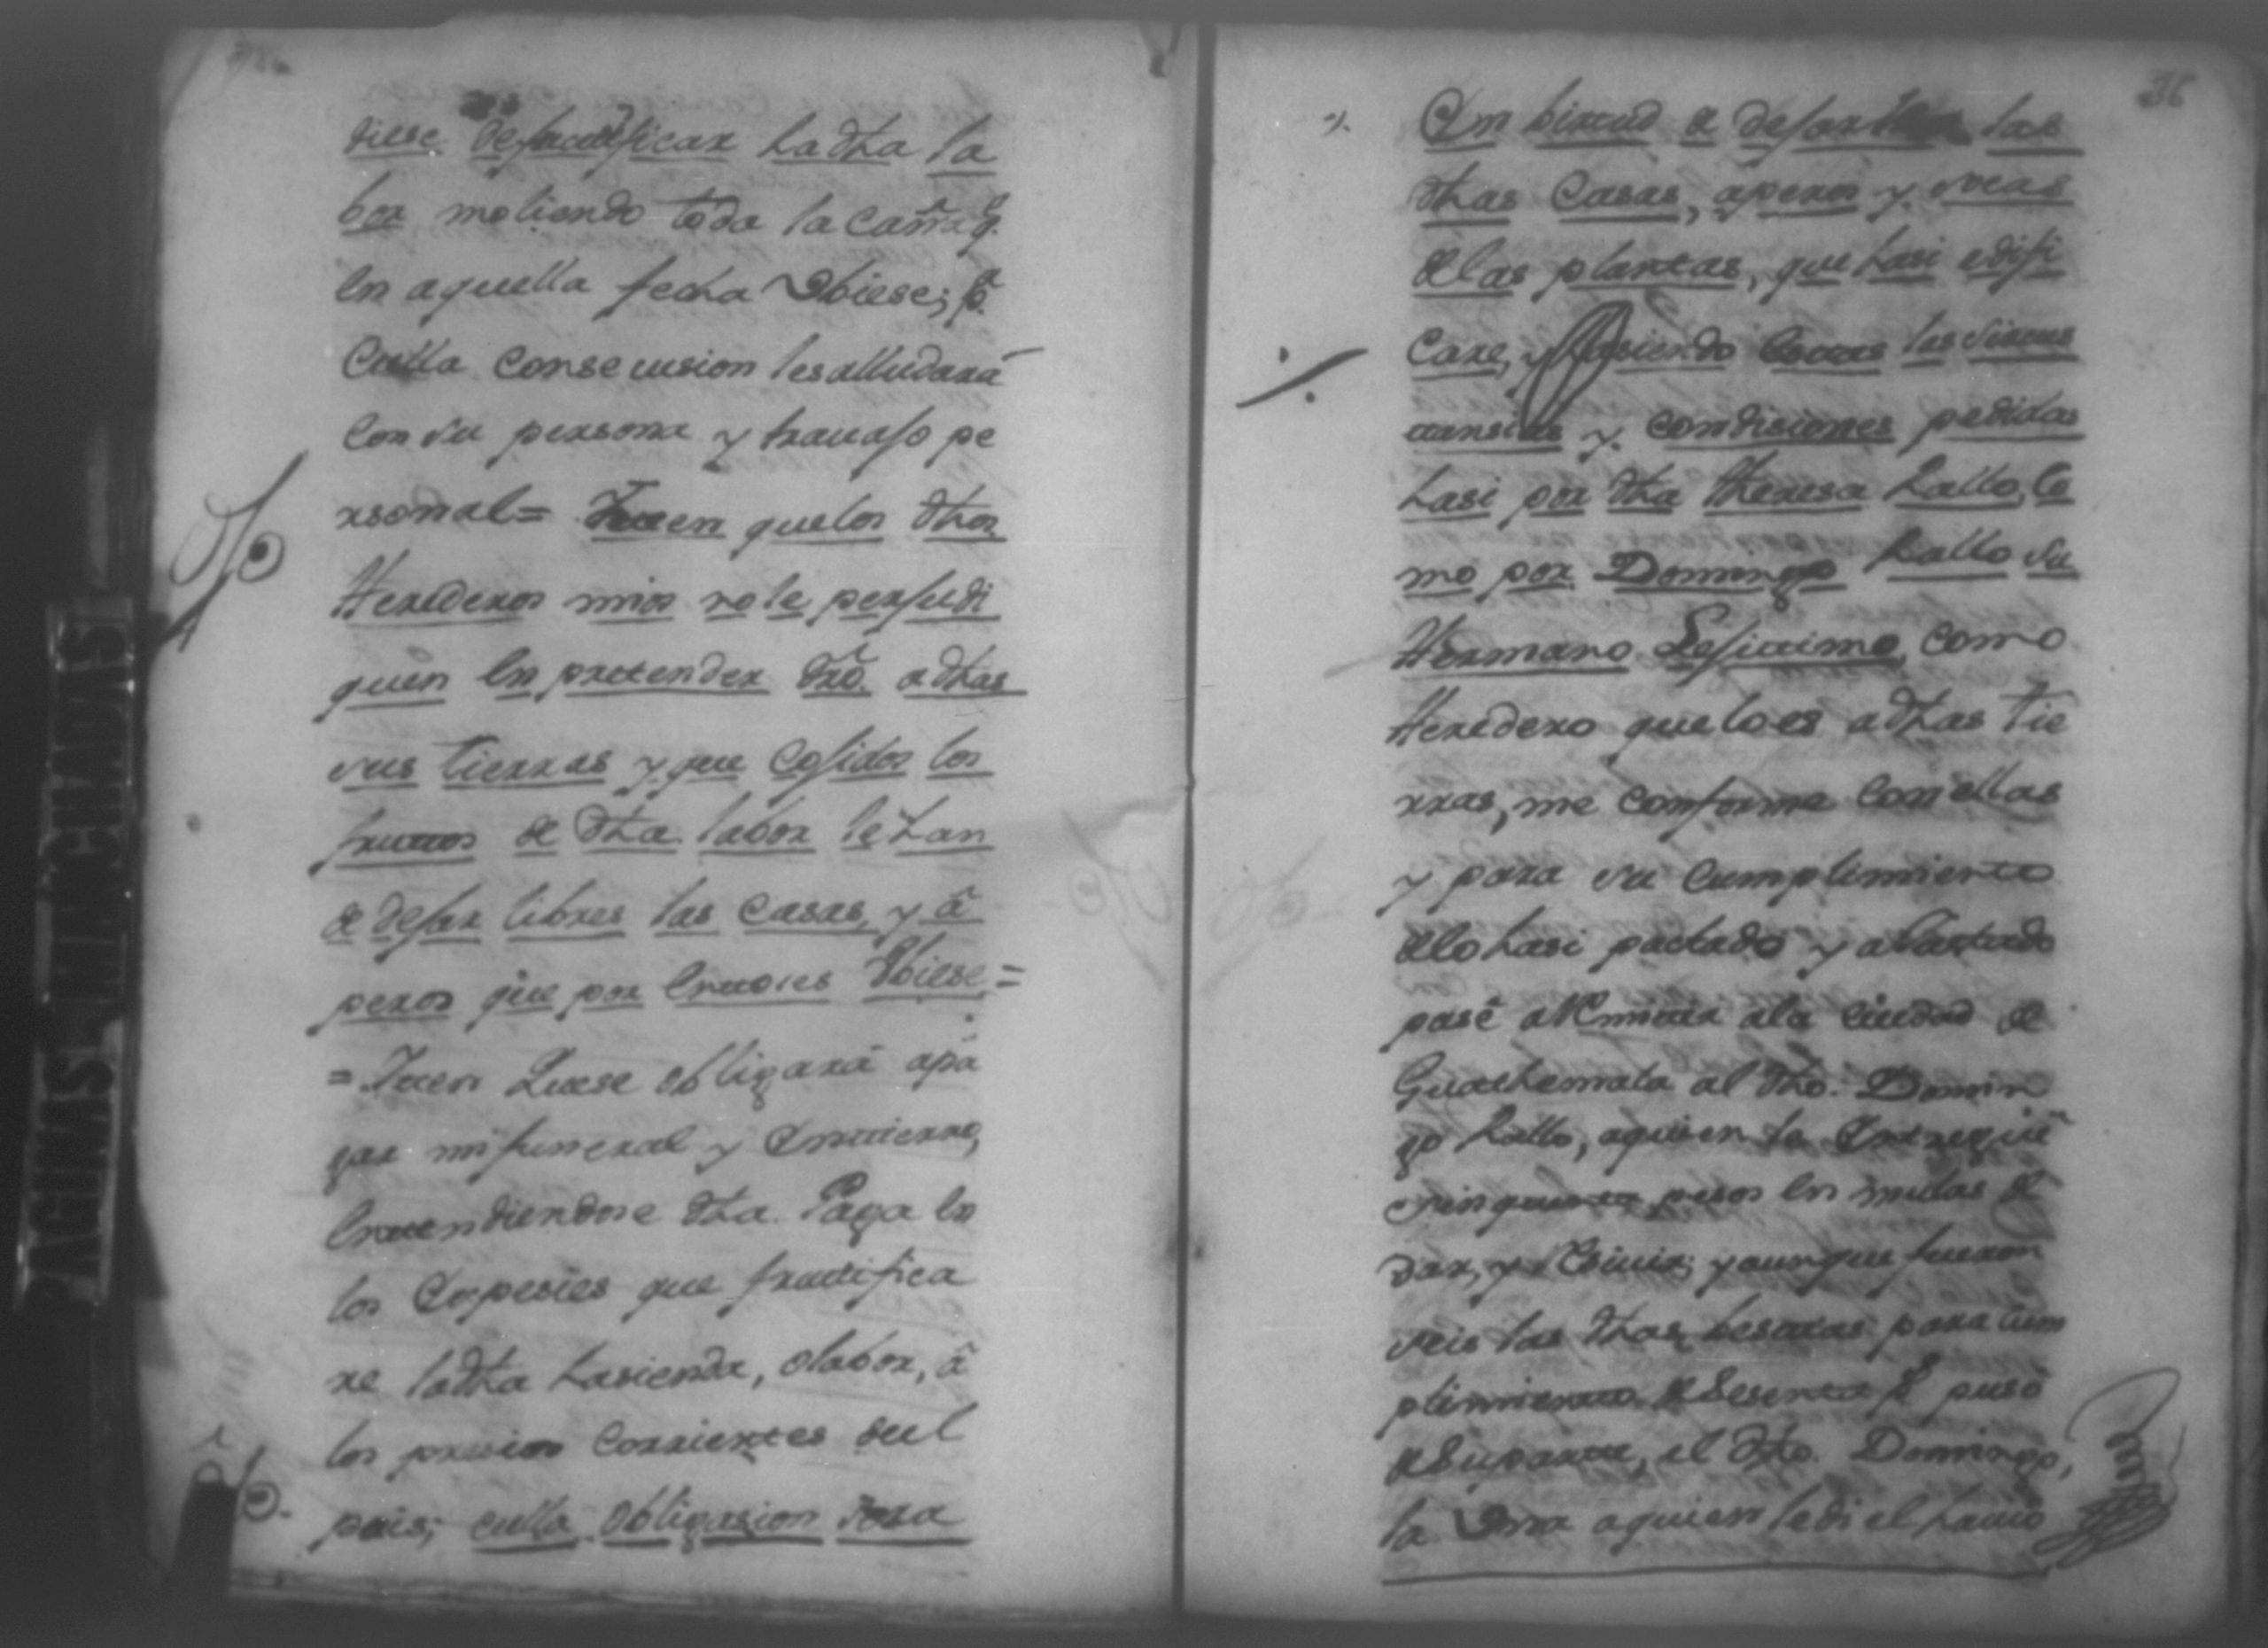 diese defructificar ha dha la
bor moliendo toda la caña q.
en aquella fecha Vbiese; p.
Culla Consecusion les alludará
Con su persona y trauajo pe
rsonal= Iten que los dhos
Herederos mios no le perjudi
quen en pretender dro. a dhas
sus tierras y que Cojidos los
fruttos de dha labor le han
de dejar libres las Casas, y á
peros que por enttonses Vbiese=
=Itten Que se obligará a pa
gar mi funeral y Enttierro,
enttendiendose dha. Paga en
los Espesies que fructifica
re la dha hasienda, o labor, á
los presios Corrientes del
pais; culla obligasion sera
36
En birttud de dejarlen las
dhas Casas, aperos y socas
de las plantas, que hasi edifi
Care, y siendo las sircus
tansias y condisiones pedidas
hasi por dha Theresa Rallo, Co
mo por Domingo Rallo su
Hermano Lejittimo, como
Heredero que lo es a dhas tie
rras, me conforme Con ellas
y para su Cumplimiento
de lo hasi pactado y
pasé a Remitir a la ciudad de
Guathemala al dho. Domin
go Rallo, a quien le Entregué
sinquenta pesos en mulas de
dar, y Resiuir; y aunque fueron
seis las dhas bestias para cum
plimiento de Sesenta ps. puso
de Su partte, el dho. Domingo,
la Vna a quien le di el
PAGINAS MANCHADAS